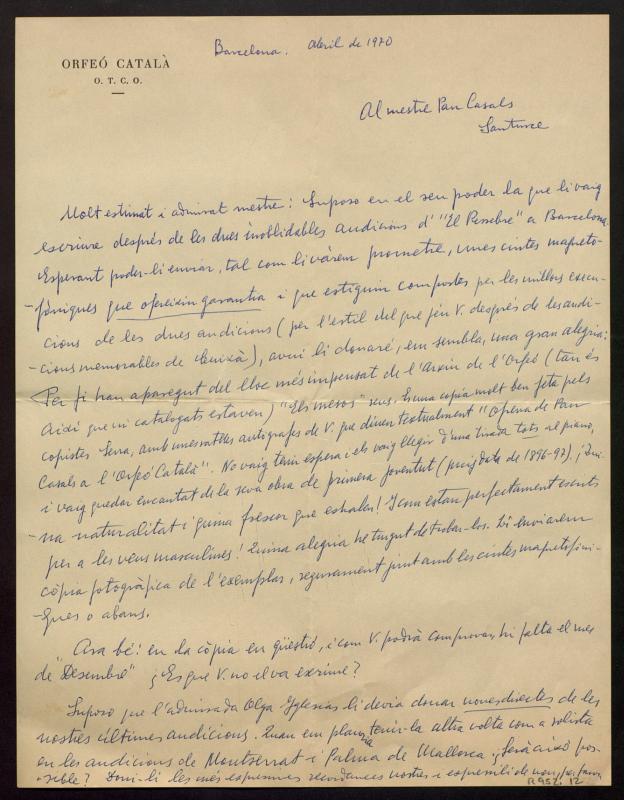 ORFEÓ CATALÀ
O. T. C. O.
Barcelona. Abril de 1970
Al mestre Pau Casals
Santurce
Molt estimat i admirat mestre: Suposo en el seu poder la que li vaig
escriure després de les dues inoblidables audicions d' "El Pessebre" a Barcelona.
Esperant poder-li enviar, tal com li vàrem prometre, unes cintes magneto-
-fòniques que ofereixin garantia i que estiguin compostes per les millors execu-
cions de les dues audicions (per l'estil del que féu V. després de les audi-
-cions memorables de Cuixà), avui li donaré, em sembla, una gran alegria:
Per fi han aparegut del lloc més impensat de l'Arxiu de l'Orfeó (tan és
així que ni catalogats estaven) "Els mesos" seus. Es una copia molt ben feta pels
copistes Serra, amb unes ratlles autògrafes de V. que diuen textualment "Ofrena de Pau
Casals a l'Orfeó Català". No vaig tenir espera i els vaig llegir d'una tirada tots al piano,
i vaig quedar encantat de la seva obra de primera joventut (puig data de 1896-97). ¡Qui-
na naturalitat i quina frescor que exhalen! I com estan perfectament escrits
per a les veus masculines! Quina alegria he tingut de trobar-los. Li enviarem
còpia fotogràfica de l'exemplar, segurament junt amb les cintes magnetofòni-
ques o abans.
Ara bé: en la còpia en qüestió, i com V. podrà comprovar, hi falta el mes
de "Desembre" ¿Es que V. no el va escriure?
Suposo que l'admirada Olga Yglesias li devia donar noves directes de les
nostres últimes audicions. Quan em plauria tenir-la altra volta com a solista
en les audicions de Montserrat i Palma de Mallorca. ¿Serà això pos-
-sible? Doni-li les més expressives recordances nostres i expressi-li de nou
R.952.12